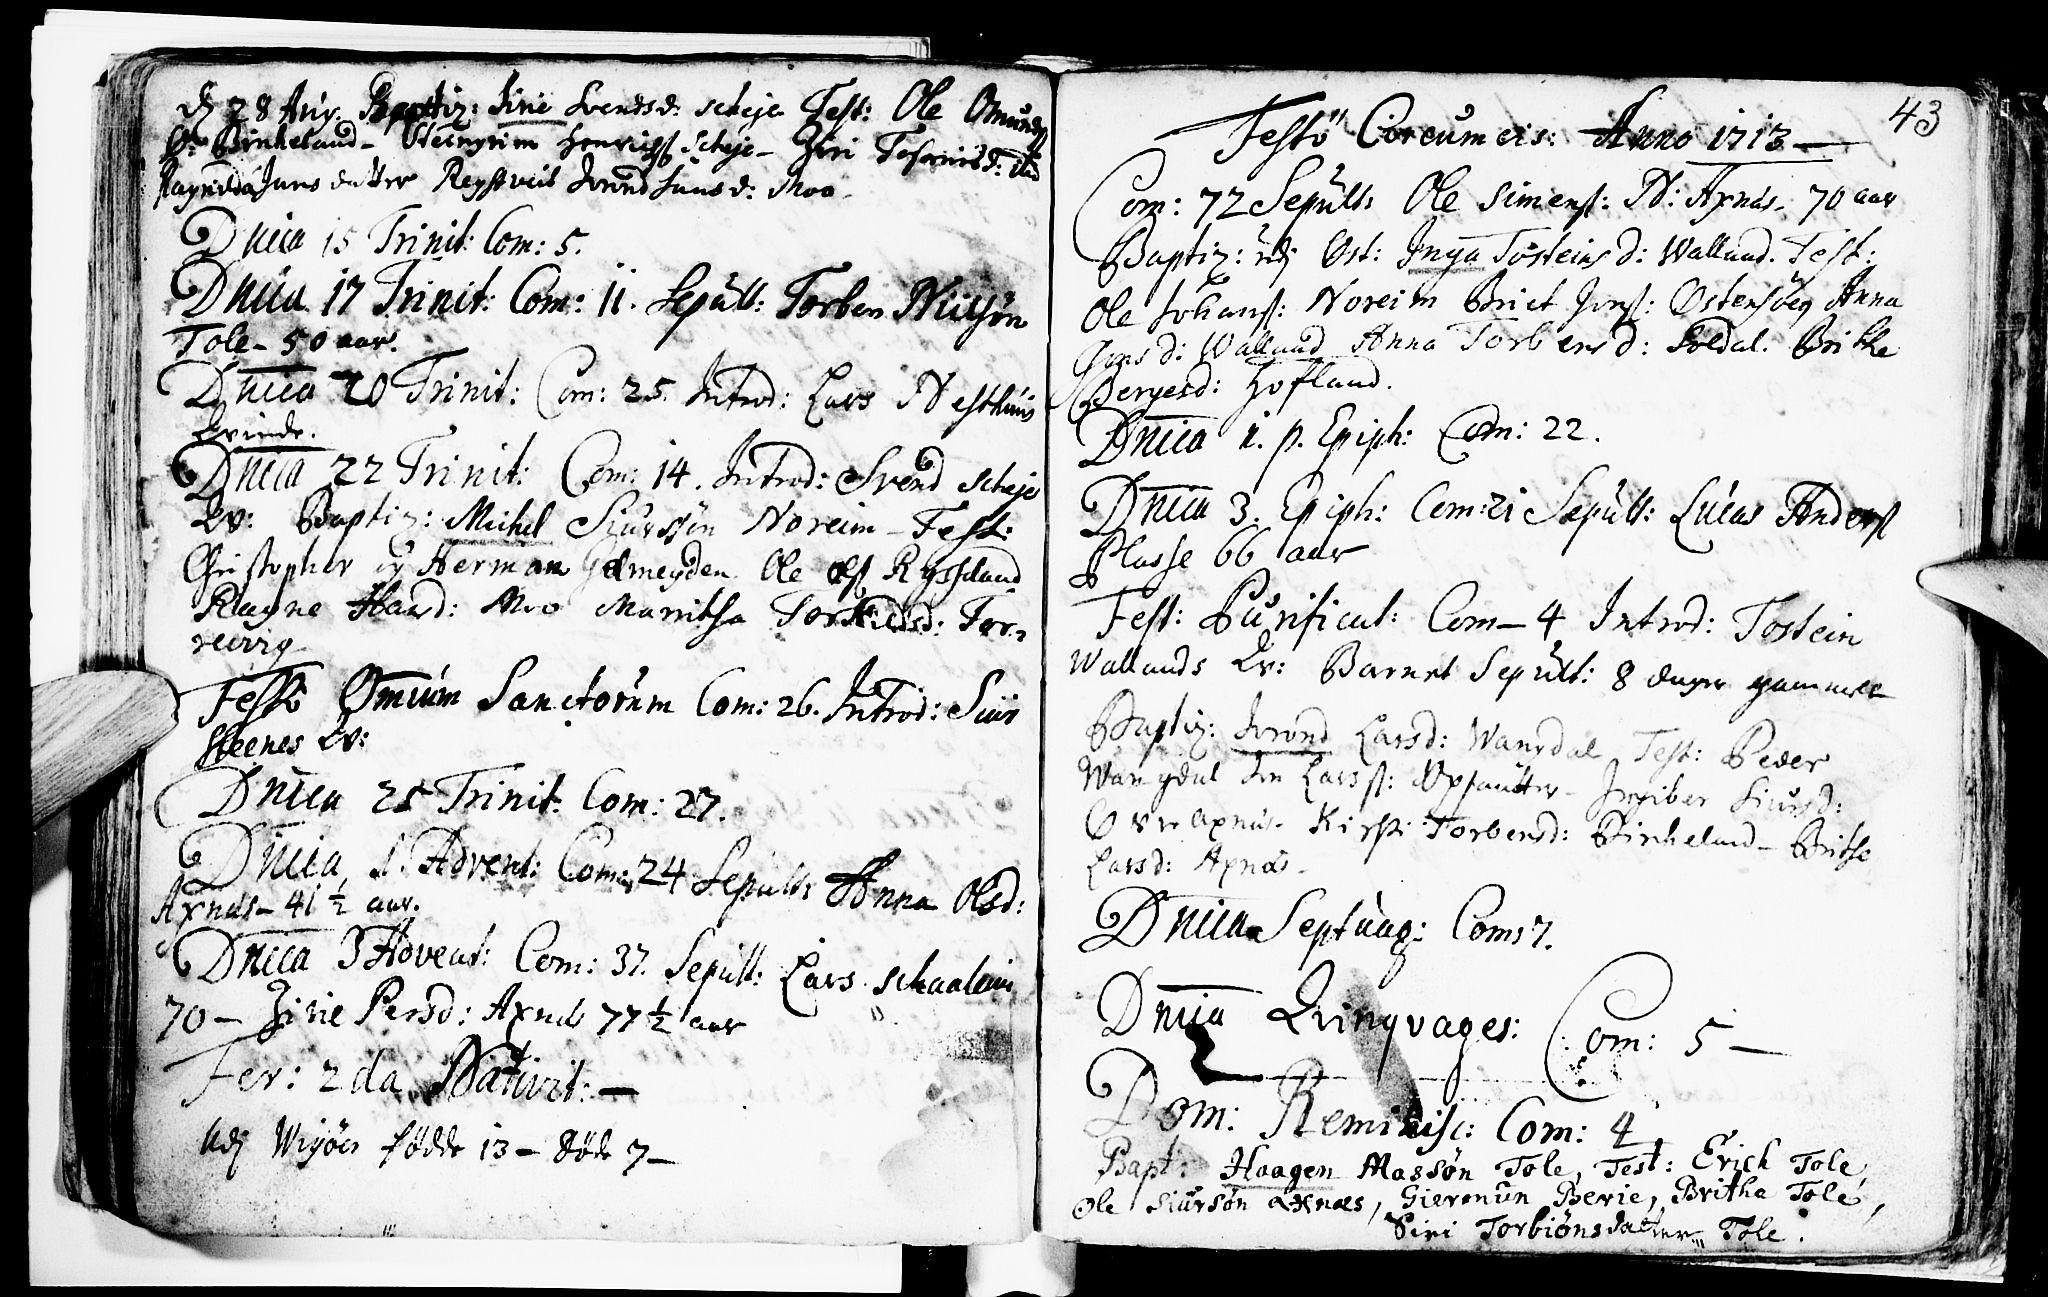 28 Aug. Baptiz: Sirie Svends d. scheje Test: Ole Omunds
Birkeland – Steingrim Henrichs scheje – Ziri
datter Røysetveit d: Moo
Dnica 15 Trinit: Com: 5.
Dnica 17 Trinit: Com: 11. Sepult: Torben Nielsøn
Tole – 50 aar.
Dnica 20 Trinit: Com: 25. Introd: Lars Nesthuus
Qvinde.
Dnica 22 Trinit: Com: 14. Introd: Svend scheje
Qv: Baptiz: Michel Siurssøn Noreim – Test:
Christopher og Herman Gelmeyden Ole Røsseland
Ragne Haard: Moo Maritha Torkildsd: Tor-
revig
Festo Omium Sanctorum Com: 26. Introd: Siur
Steenes Qv:
Dnica 25 Trinit: Com: 27.
Dnica 1. Advent: Com: 24 Sepult: Anna Olsd:
Axnæs – 41 ½ aar.
Dnica 3 Advent: Com: 37. Sepult: Lars schaalem
70 – Zirie Persd: Axnæs 77 ½ aar
Fer: 2da Nativit: –
Udj Wigøer fødde 13 – døde 7 –
43
Festo Circumcis: Anno 1713 –
Com: 72 Sepult: Ole Simens: N: Axnæs. 70 aar
Baptiz: udj Ost: Inga Tosteins d: Walland. Test:
Ole Johans: Noreim Briet Jons: Ostensveg Anna
Jons d: Walland Anna Torbens d: Soldal. Brithe
Bergesd: Hofland.
Dnica 1. p. Epiph: Com: 22.
Dnica 3. Epiph: Com: 21 Sepult: Lucas Anders
Plasse 66 aar
Fest: Purificat: Com – 4 Introd: Tostein
Wallands Qv: Barnet Sepult: 8 dager gammelt
Baptiz: Larsd: Wangdal Test: Peder
Wangdal Larss: Opsautter – Siursd:
Øvre Axnæs – Kirsti Torbensd: Birkeland – Brithe
Larsd: Axnæs –
Dnica Septuag: Com: 7.
Dnica Qvinqvages: Com: 5 –
Dom: Reminisc: Com: 4
Bapt: Haagen Massøn Tole, Test: Erich Tole,
Ole Siursøn axnæs, Gieronun Berie, Brithe Tole,
Siri Torbiønsdatter Tole.